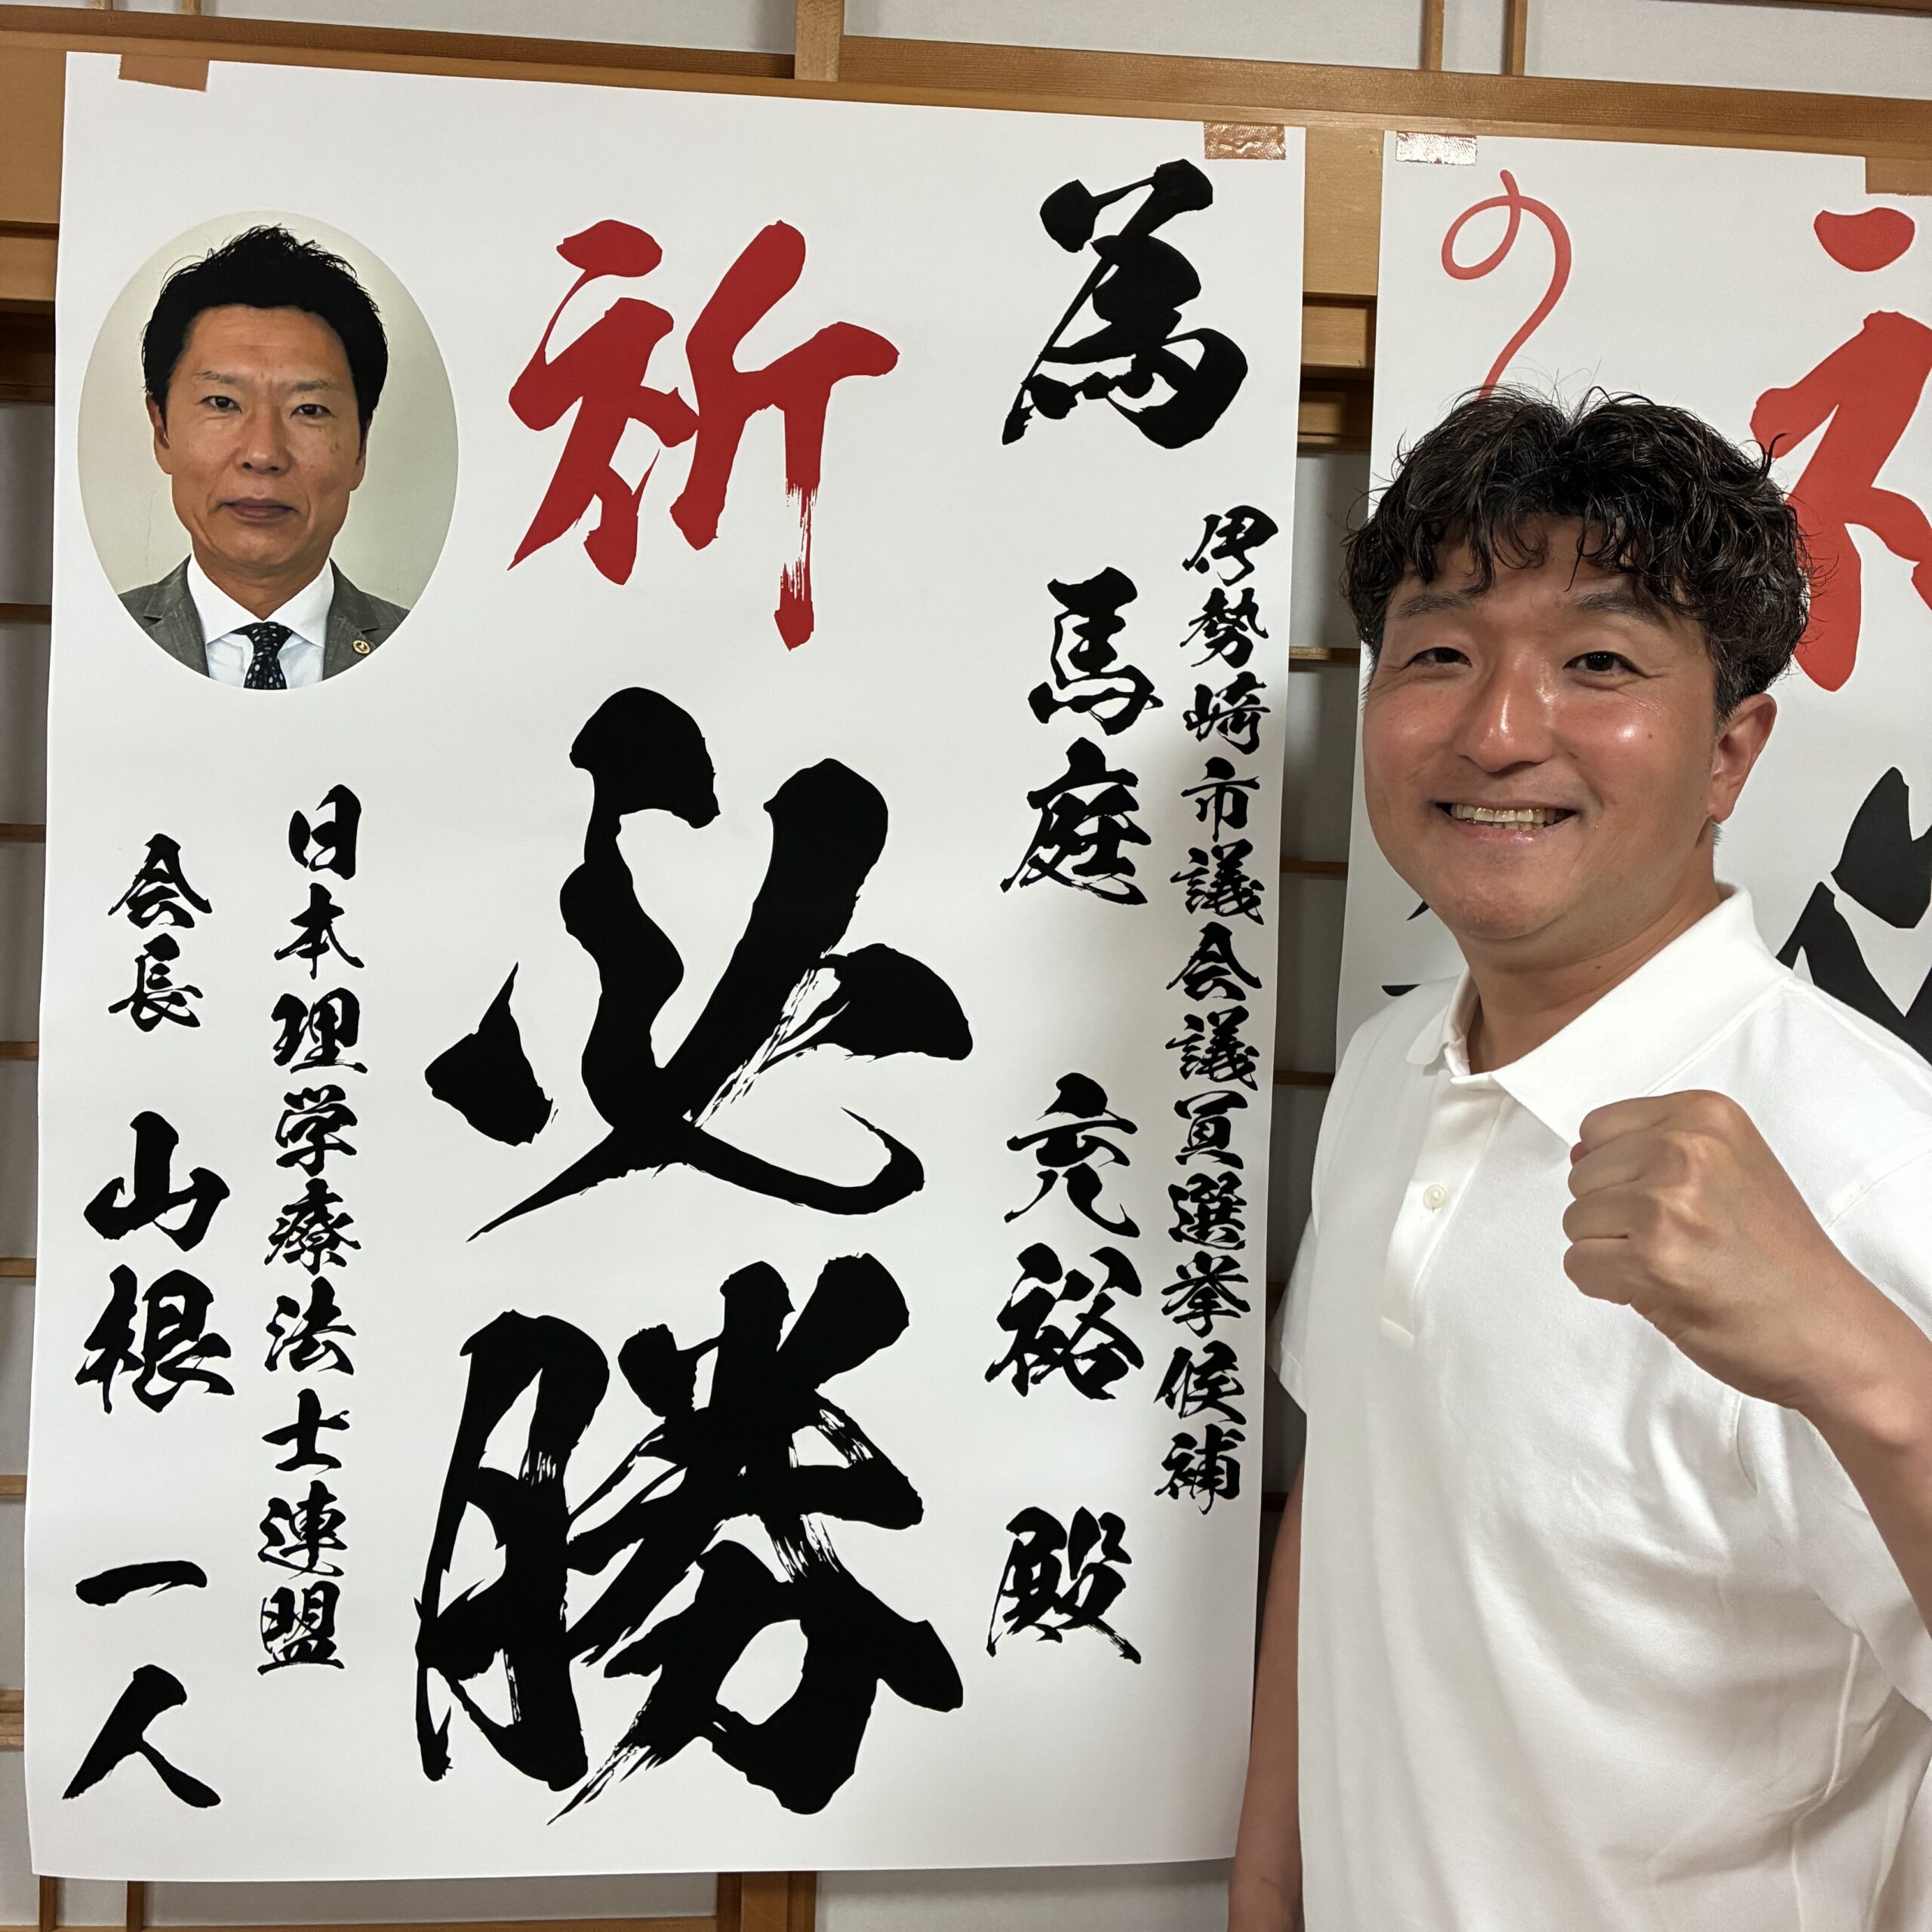 為
伊勢崎市議会議員選挙候補
馬庭 充裕 殿
祈
必勝
日本理学療法士連盟
会長 山根 一人